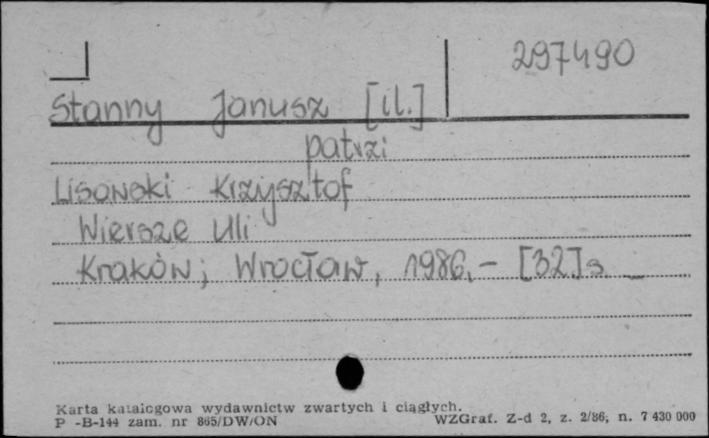 297490
Stanny Janusz [il.]
patrzi
Lisowski Krzysztof
Wiersze Uli
Kraków; Wrocław, 1986.- [32]s _
Karta katalogowa wydawnictw zwartych i ciągłych.
P -B-144 zam. nr 865/DW/ON WZGraf. Z-d 2, z. 2/86, n. 7 430 000